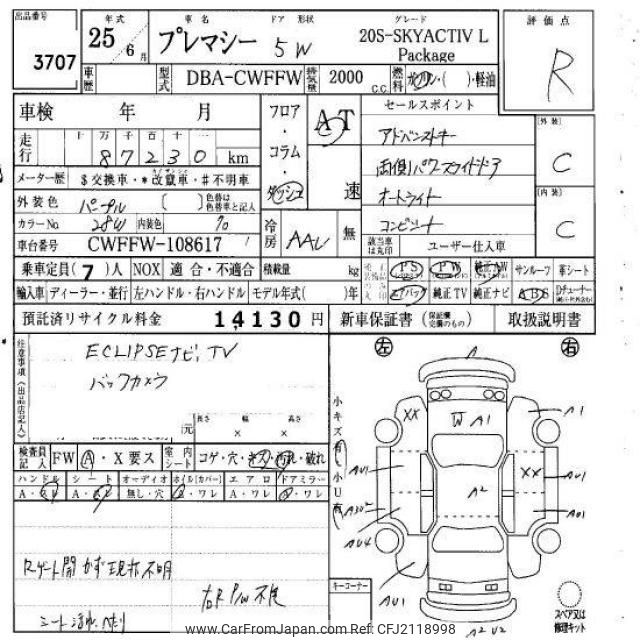 出品番号 3707
年式 25年 6月
車名 プレマシー
ドア 形状 5W
グレード 20S-SKYACTIV L Package
評価点 R
車歴
型式 DBA-CWFFW
排気量 2000 C.C.
燃料 ガソリン・( )・軽油
車検 年 月
フロア・コラム・ダッシュ
AT 速
セールスポイント
アドバンストキー
両側パワースライドドア
オートライト
コンビシート
[外装] C
[内装] C
走行 十万千百十
87230 km
メーター歴 $交換車・*改竄車・#不明車
外装色 パープル ( ) 色替は色替車と記入
カラーNo 28W 内装色 70
冷房 AAC 無
該当車は丸印 ユーザー仕入車
車台番号 CWFFW-108617
乗車定員(7)人 NOX 適合・不適合 積載量 kg
PS PW 純正AW サンルーフ 革シート
輸入車 ディーラー・並行 左ハンドル・右ハンドル モデル年式( )年
エアバック 純正TV 純正ナビ ABS Dチューナー
預託済リサイクル料金 14130円
新車保証書 (保証欄交換のもの) 取扱説明書
注意事項(出品店記入)
ECLIPSEナビ, TV
バックカメラ
元
長さ 幅 高さ
× ×
左 右
小キズ(有) 小U(有)
検査員記入 FW A・X要ス
室内シート コゲ・穴・キズ・汚れ・破れ
ハンドル シート オーディオ ホイル(カバー) エアロ ドアミラー
A・スレ A・スレ 無し・穴 A・ワレ A・ワレ A・ワレ
XX W A1 A1
AU1 XX AU1
A2
AU4 AU1
AU1
A2 U2
Rゲート開かず現状不明
右R P/W不良
キーコーナー
スペア又は修理キット
www.CarFromJapan.com Ref:CFJ2118998